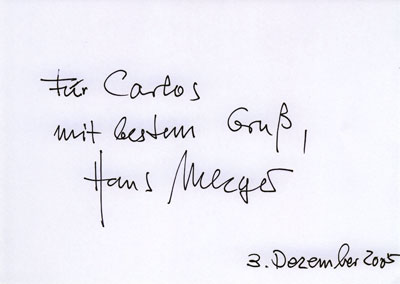 Für Carlos
mit bestem Gruß,
Hans
3. Dezember 2005